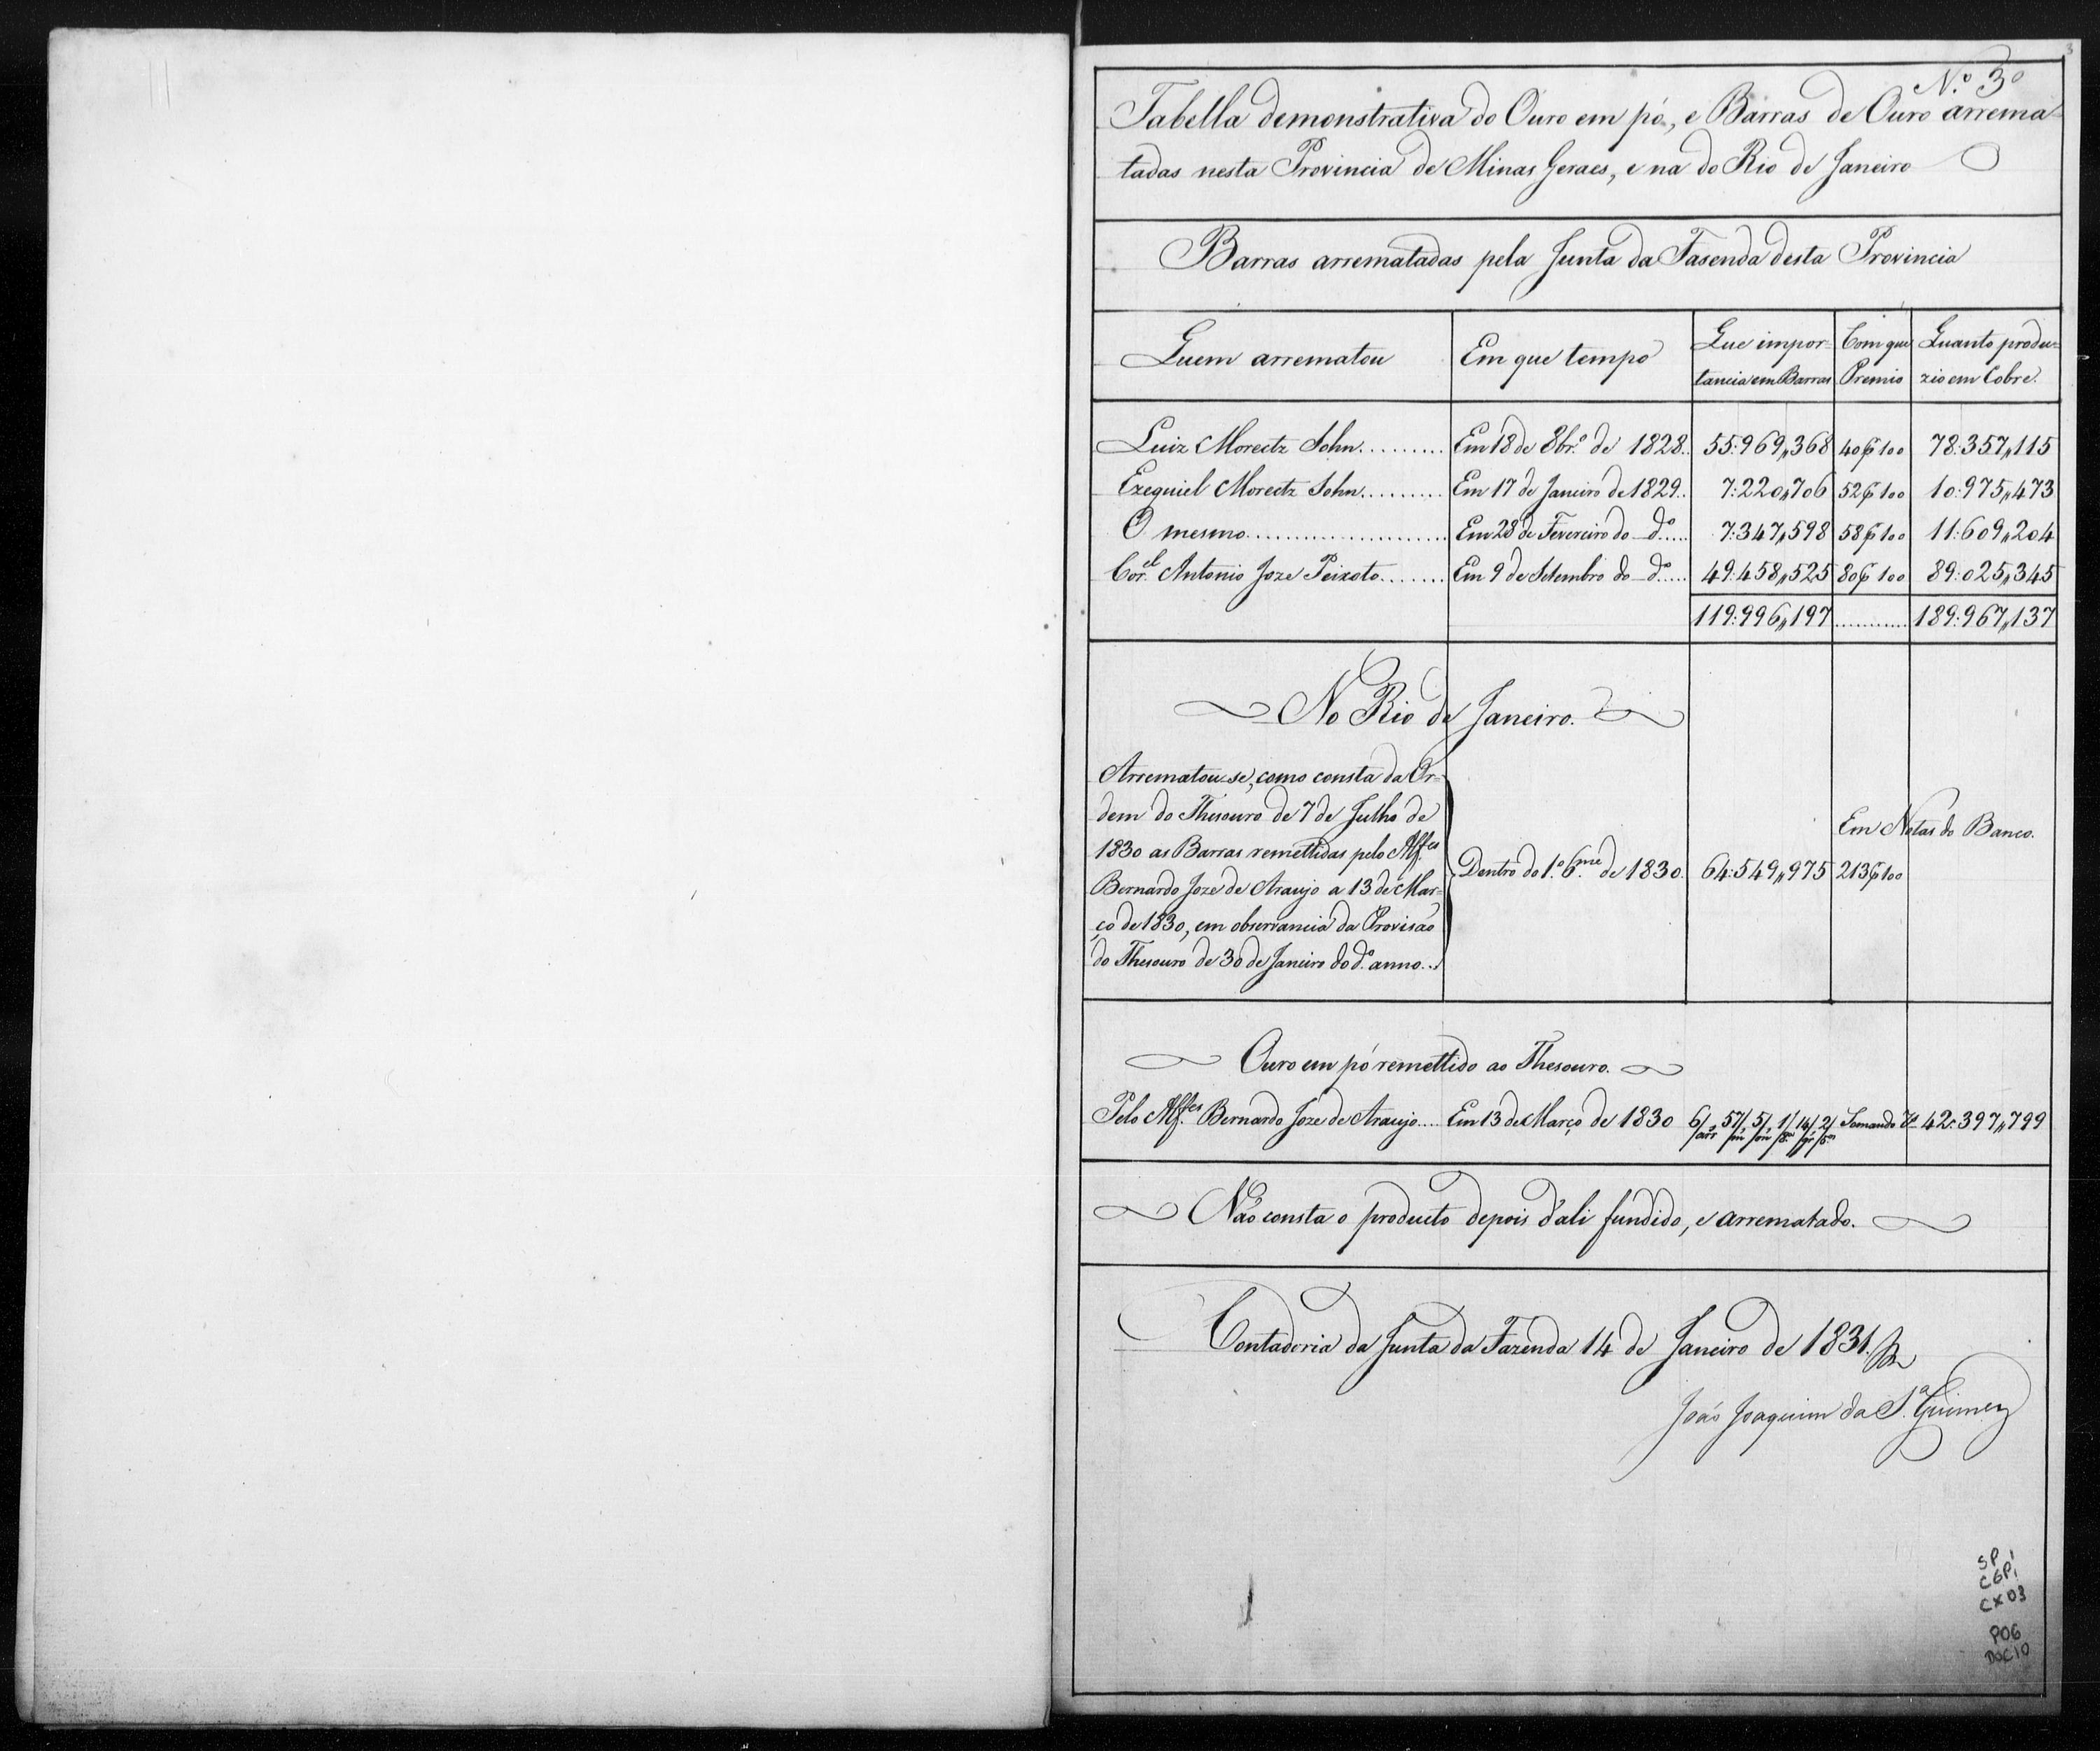 N.º 3º
Tabella demonstrativa do Ouro em pó, e Barras de Ouro arrema-
tadas nesta Provincia de Minas Geraes, e na do Rio de Janeiro
Barras arrematadas pela Junta da Fasenda desta Provincia
Quem arrematou | Em que tempo | Que impor- | Com que | Quanto produ-
tancia em Barras | Premio | zio em Cobre.
Luiz Moretz Sohn......... | Em 18 de 8br.º de 1828.. | 55:969,,368 | 40 p 100 | 78:357,,115
Ezequiel Moretz Sohn......... | Em 17 de Janeiro de 1829.. | 7:220,,706 | 52 p 100 | 10:975,,473
O mesmo...................... | Em 28 de Fevereiro do dº..... | 7:347,,598 | 58 p 100 | 11:609,,204
Cor.el Antonio Joze Peixoto....... | Em 9 de Setembro do dº..... | 49:458,,525 | 80 p 100 | 89:025,,345
119:996,,197 | ........... | 189:967,,137
No Rio de Janeiro.
Arrematou-se, como consta da Or-
dem do Thesouro de 7 de Julho de
1830 as Barras remettidas pelo Alf.es
Bernardo Joze de Araujo a 13 de Mar-
ço de 1830, em observancia da Provisão
do Thesouro de 30 de Janeiro do dº anno..
Dentro do 1.º 6.me de 1830. | 64:549,,975 | 213 p 100
Em Notas do Banco.
Ouro em pó remettido ao Thesouro.
Pelo Alf.es Bernardo Joze de Araujo.... Em 13 de Março de 1830 6/ 57/ 5/ 1/ 14/ 2/ Somando 42:397,,799
Não consta o producto depois d'ali fundido, e arrematado.
Contadoria da Junta da Fazenda 14 de Janeiro de 1831.
João Joaquim da S.ª Guimes
SP 1
CGP1
CX 03
P06
DOC10